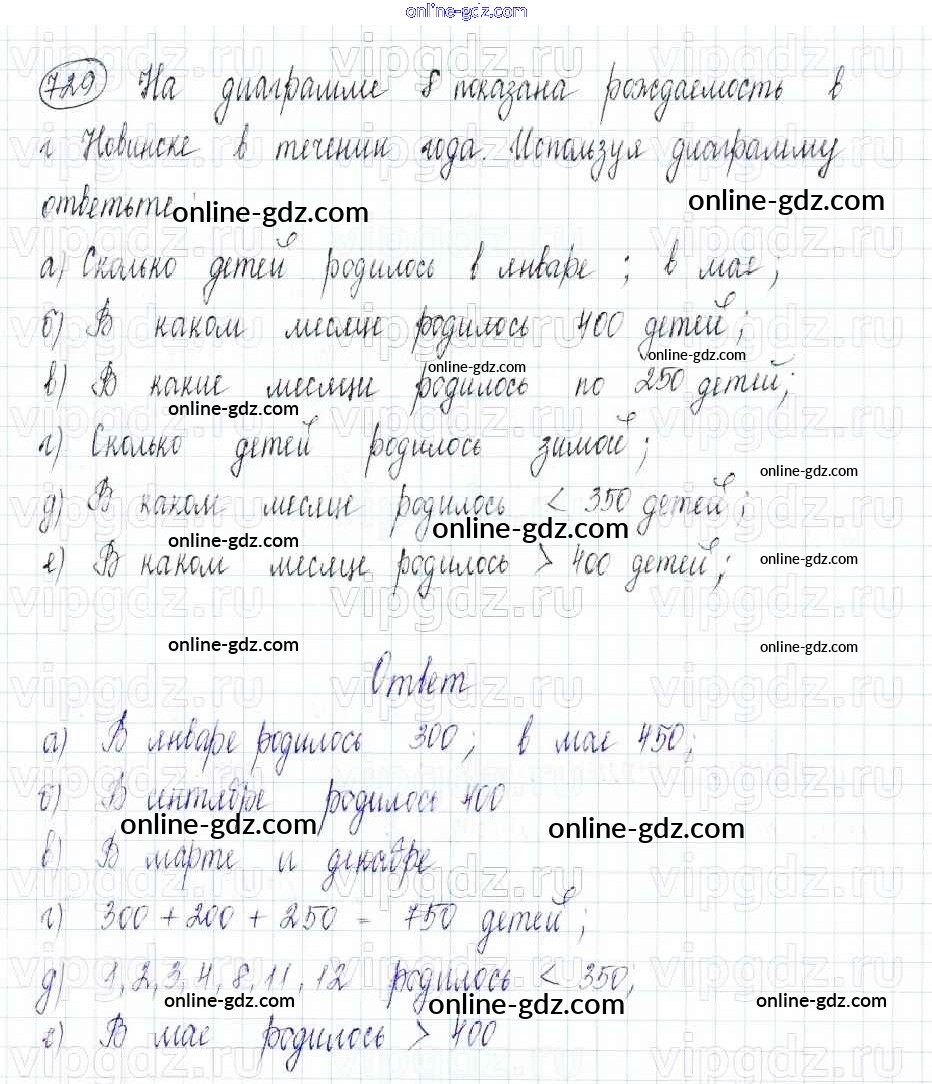 online-gdz.com
729 На диаграмме 8 показана рождаемость в
г Новинске в течении года. Используя диаграмму
ответьте:
online-gdz.com online-gdz.com
а) Сколько детей родилось в январе; в мае;
б) В каком месяце родилось 400 детей;
online-gdz.com online-gdz.com
в) В какие месяцы родилось по 250 детей;
online-gdz.com
г) Сколько детей родилось зимой;
online-gdz.com
д) В каком месяце родилось < 350 детей;
online-gdz.com online-gdz.com
е) В каком месяце родилось > 400 детей;
online-gdz.com
online-gdz.com online-gdz.com
Ответ
а) В январе родилось 300; в мае 450;
б) В сентябре родилось 400
online-gdz.com online-gdz.com
в) В марте и декабре
г) 300 + 200 + 250 = 750 детей;
д) 1, 2, 3, 4, 8, 11, 12 родилось < 350;
online-gdz.com online-gdz.com online-gdz.com
е) В мае родилось > 400
vipgdz.ru